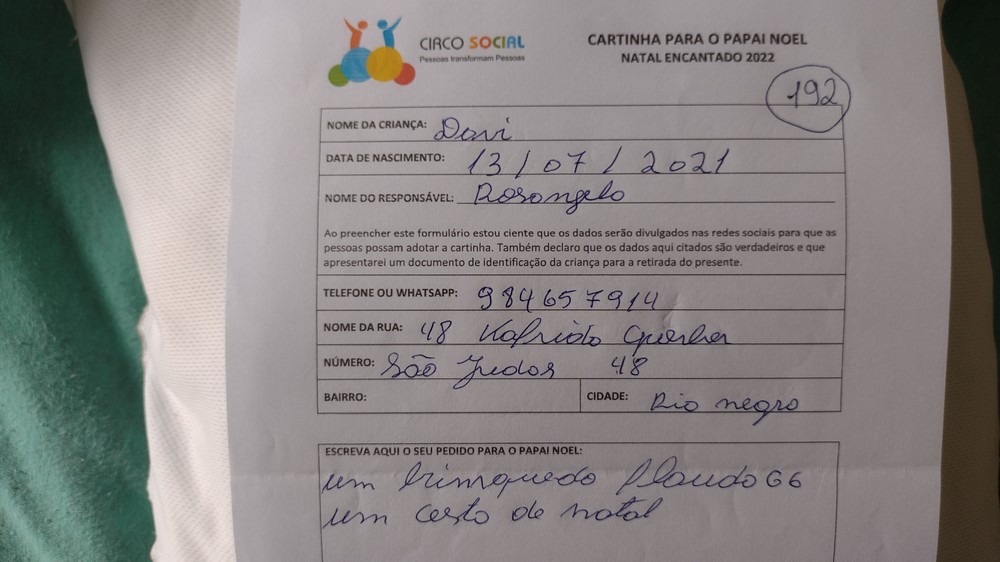 CIRCO SOCIAL
Pessoas transformam Pessoas
CARTINHA PARA O PAPAI NOEL
NATAL ENCANTADO 2022
192
NOME DA CRIANÇA: Davi
DATA DE NASCIMENTO: 13 / 07 / 2021
NOME DO RESPONSÁVEL: Rosangela
Ao preencher este formulário estou ciente que os dados serão divulgados nas redes sociais para que as
pessoas possam adotar a cartinha. Também declaro que os dados aqui citados são verdadeiros e que
apresentarei um documento de identificação da criança para a retirada do presente.
TELEFONE OU WHATSAPP: 984657914
NOME DA RUA: 48
NÚMERO: São Judas 48
BAIRRO:
CIDADE: Rio negro
ESCREVA AQUI O SEU PEDIDO PARA O PAPAI NOEL:
um brinquedo GG
um cesto de natal